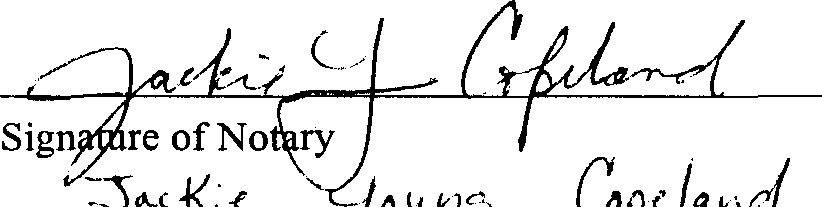 Jackie Y Copeland
Signature of Notary
Jackie Young Copeland